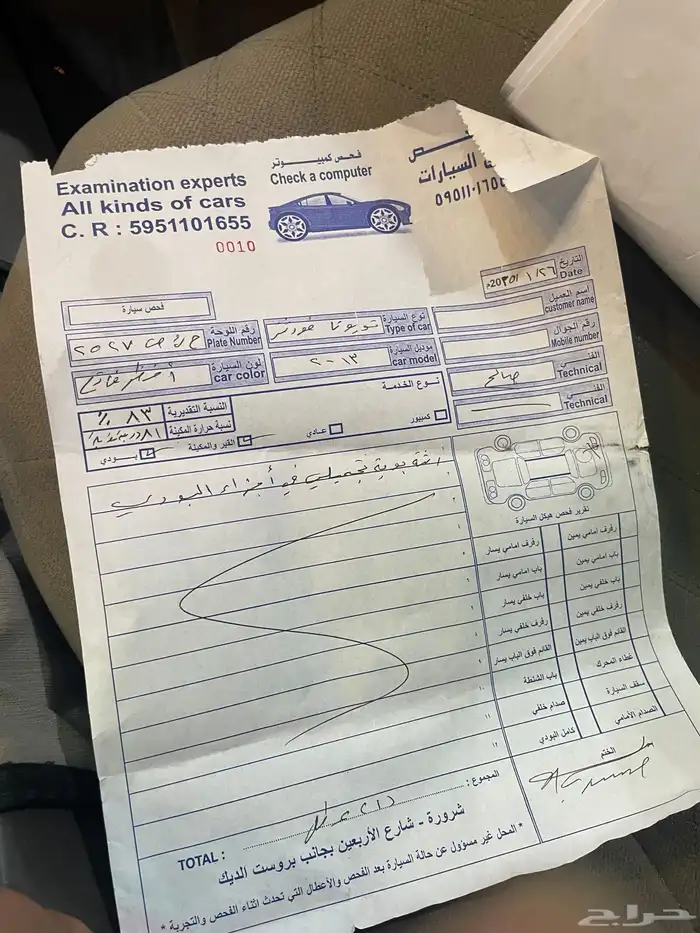 Examination experts
All kinds of cars
C. R : 5951101655
0010
فحص كمبيوتر
Check a computer
السيارات
التاريخ
Date
اسم العميل
customer name
رقم الجوال
Mobile number
الفني
Technical
صالح
الفني
Technical
فحص سيارة
رقم اللوحة
Plate Number
٢٥٢٧
نوع السيارة
Type of car
تويوتا
لون السيارة
car color
موديل السيارة
car model
٢٠١٣
نوع الخدمة
كمبيوتر
عادي
القير والمكينة
بودي
النسبة التقديرية
٨٣ %
نسبة حرارة المكينة
٨١
بوية تجميلي في أجزاء البودي
تقرير فحص هيكل السيارة
رفرف امامي يمين
رفرف امامي يسار
باب امامي يمين
باب امامي يسار
باب خلفي يمين
باب خلفي يسار
رفرف خلفي يمين
رفرف خلفي يسار
القائم فوق الباب يمين
القائم فوق الباب يسار
غطاء المحرك
باب الشنطة
سقف السيارة
صدام خلفي
الصدام الأمامي
كامل البودي
الختم
المجموع :
TOTAL :
شرورة - شارع الأربعين بجانب بروست الديك
* المحل غير مسؤول عن حالة السيارة بعد الفحص والأعطال التي تحدث اثناء الفحص والتجربة *
حراج